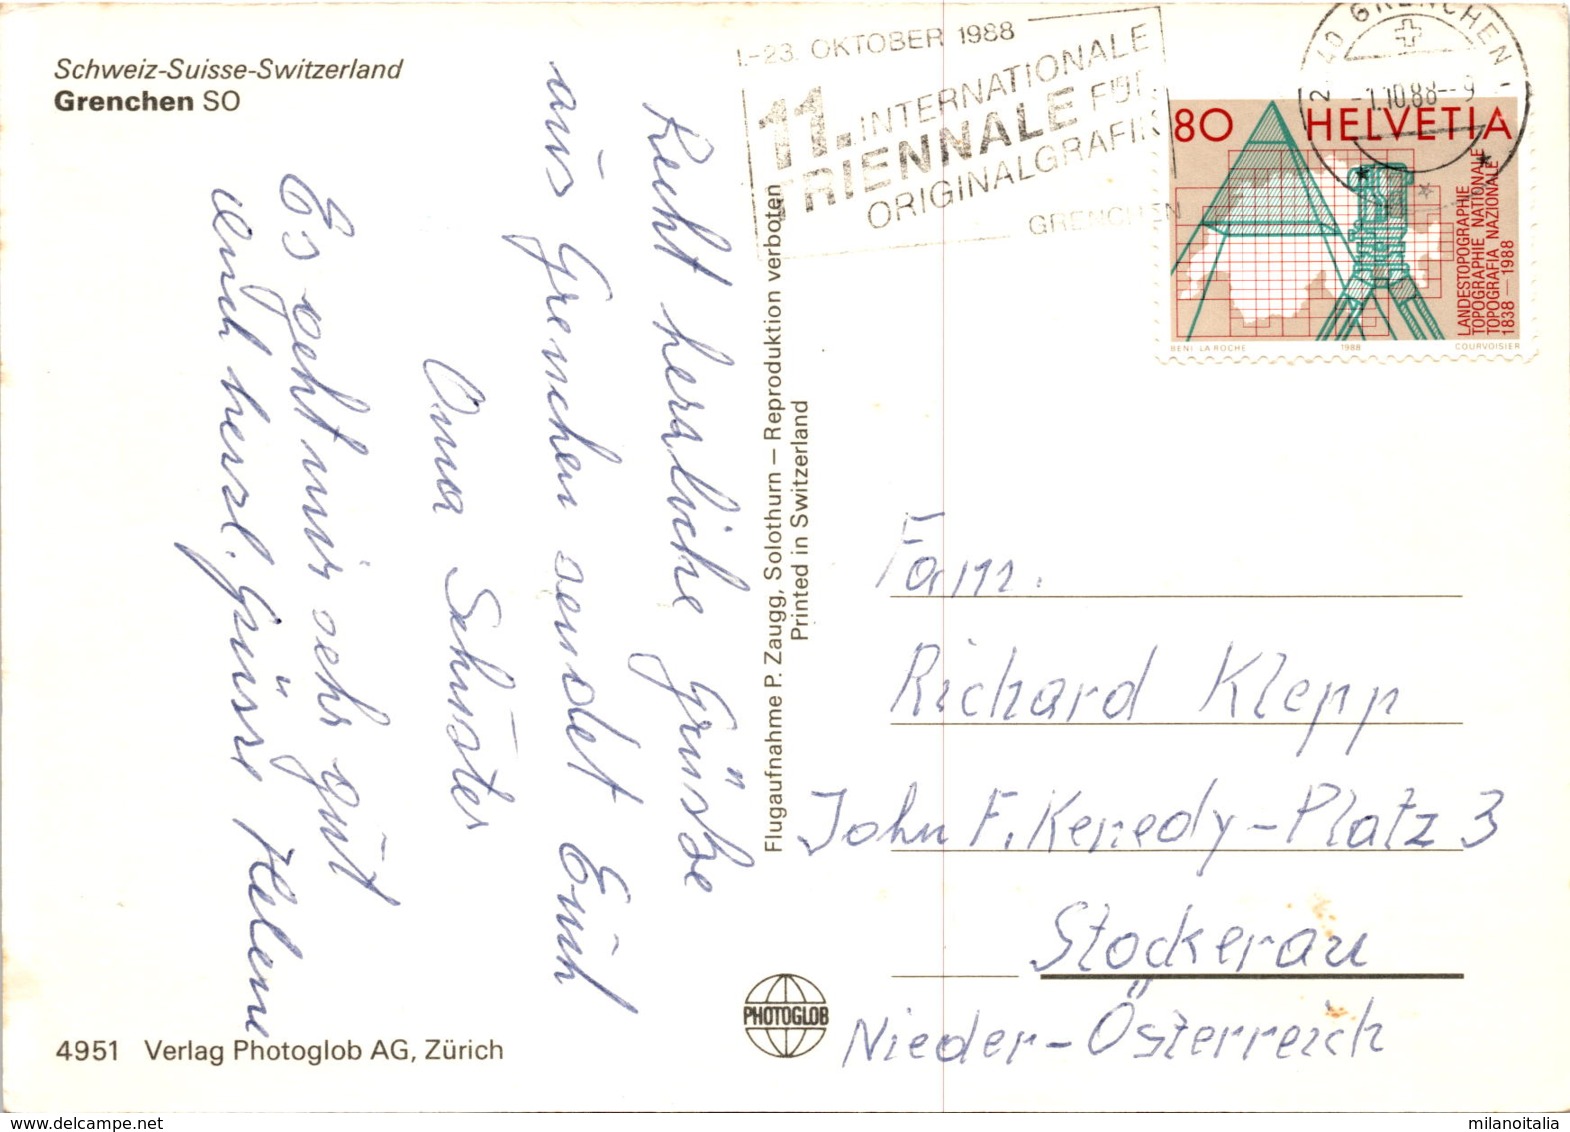 Schweiz-Suisse-Switzerland
Grenchen SO
1.-23. OKTOBER 1988
11. INTERNATIONALE
TRIENNALE FÜR
ORIGINALGRAFIK
GRENCHEN
2540 GRENCHEN 1
-1.10.88--9
80 HELVETIA
LANDESTOPOGRAPHIE
TOPOGRAPHIE NATIONALE
TOPOGRAFIA NAZIONALE
1838 – 1988
BENI LA ROCHE 1988 COURVOISIER
Recht herzliche Grüsse
aus Grenchen sendet Euch
Oma Schuster
Es geht mir sehr gut
Auch herzl. Grüsse Helene
Flugaufnahme P. Zaugg, Solothurn – Reproduktion verboten
Printed in Switzerland
Fam.
Richard Klepp
John F. Kenedy-Platz 3
Stockerau
Nieder-Österreich
PHOTOGLOB
4951 Verlag Photoglob AG, Zürich
www.delcampe.net
milanoitalia